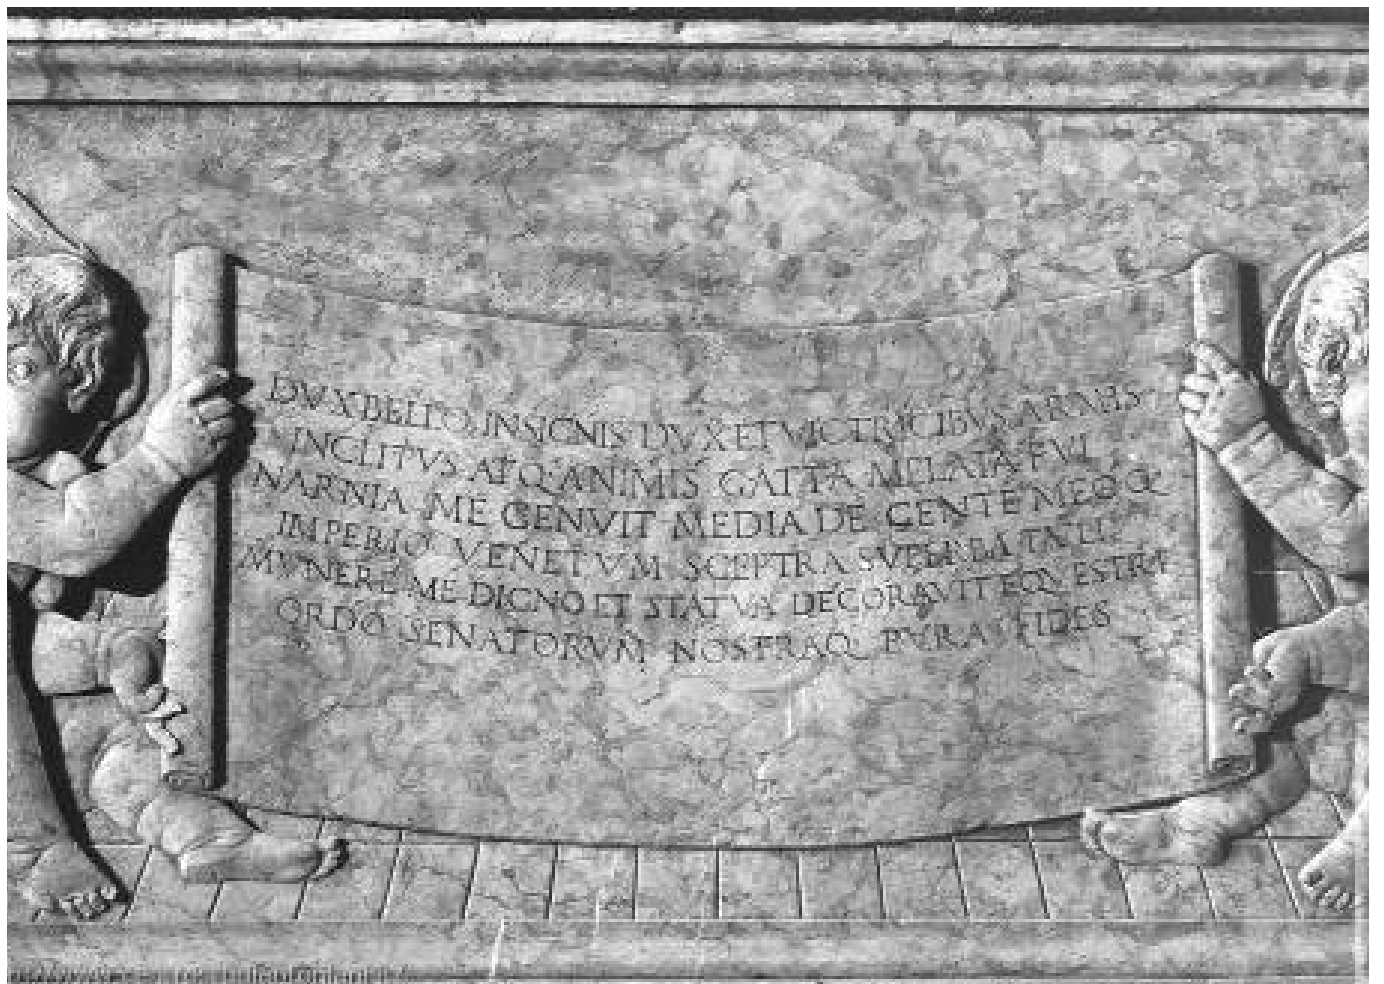 DVX BELLO INSIGNIS DVX ET VICTRICIBVS ARMIS
INCLITVS ATQ ANIMIS GATTA MELATA FVI
NARNIA ME GENVIT MEDIA DE GENTE MEOQ
IMPERIO VENETVM SCEPTRA SVPERBA TVLIT
MVNERE ME DIGNO ET STATVA DECORAVIT EQVESTRI
ORDO SENATORVM NOSTRAQ PVRA FIDES